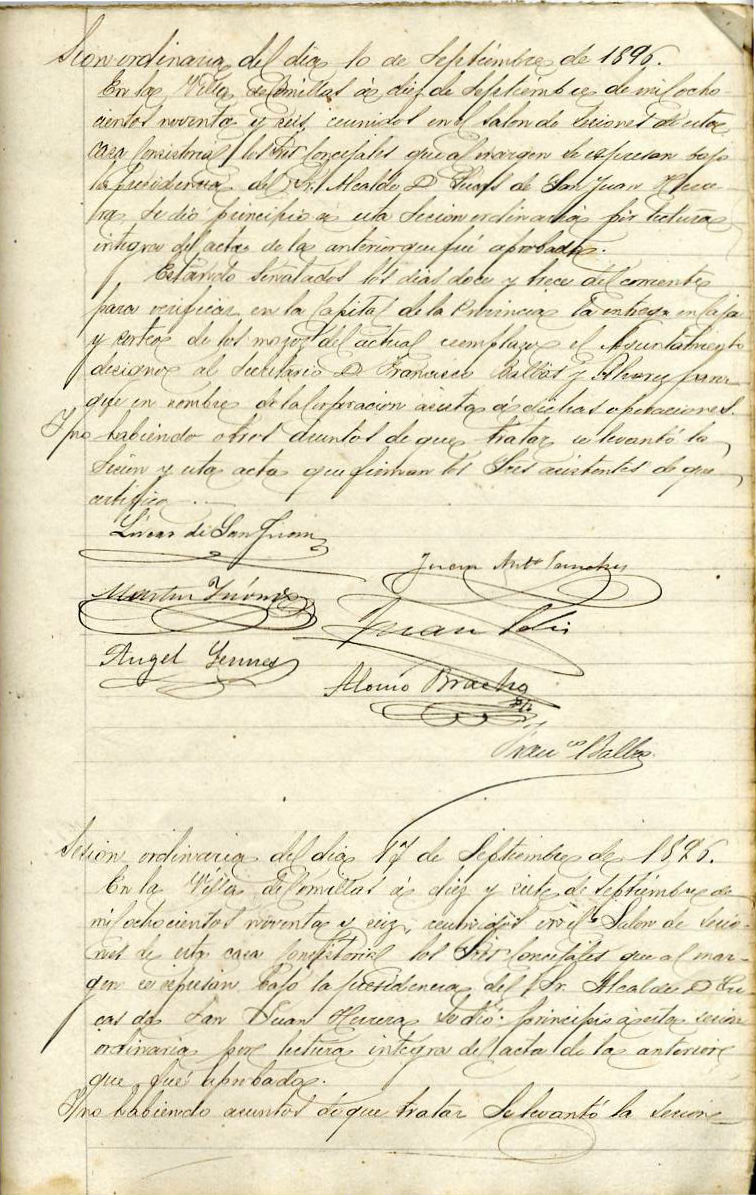 Sesion ordinaria del dia 10 de Septiembre de 1896.
En la Villa de Comillas á diez de Septiembre de mil ocho-
cientos noventa y seis, reunidos en el Salon de Sesiones de esta
casa Consistorial los Sres Concejales que al margen se espresan bajo
la presidencia del Sr. Alcalde D. Lucas de San Juan Herre-
ra, se dió principio á esta Secion ordinaria por lectura
integra del acta de la anterior que fué aprobada.
Estando señalados los dias doce y trece del corriente
para verificar en la Capital de la Provincia la entrega en Caja
y sorteo de los mozos del actual reemplazo, el Ayuntamiento
designó al Secretario D. Francisco Balbás y Alvarez para
que en nombre de la Corporacion asista á dichas operaciones.
Y no habiendo otros asuntos de que tratar se levantó la
Sesion y esta acta que firman los Sres asistentes de que
certifico.
Lucas de San Juan
Juan Antº Sanchez
Martin
Juan
Angel
Bracho
Franco Balbás
Sesion ordinaria del dia 17 de Septiembre de 1896.
En la Villa de Comillas á diez y siete de Septiembre de
mil ochocientos noventa y seis, reunidos en el Salon de Sesio-
nes de esta casa Consistorial los Sres Concejales que al mar-
gen se espresan bajo la presidencia del Sr. Alcalde D. Lu-
cas de San Juan Herrera se dió principio á esta sesion
ordinaria por lectura integra del acta de la anterior
que fué aprobada.
Y no habiendo asuntos de que tratar se levantó la Sesion